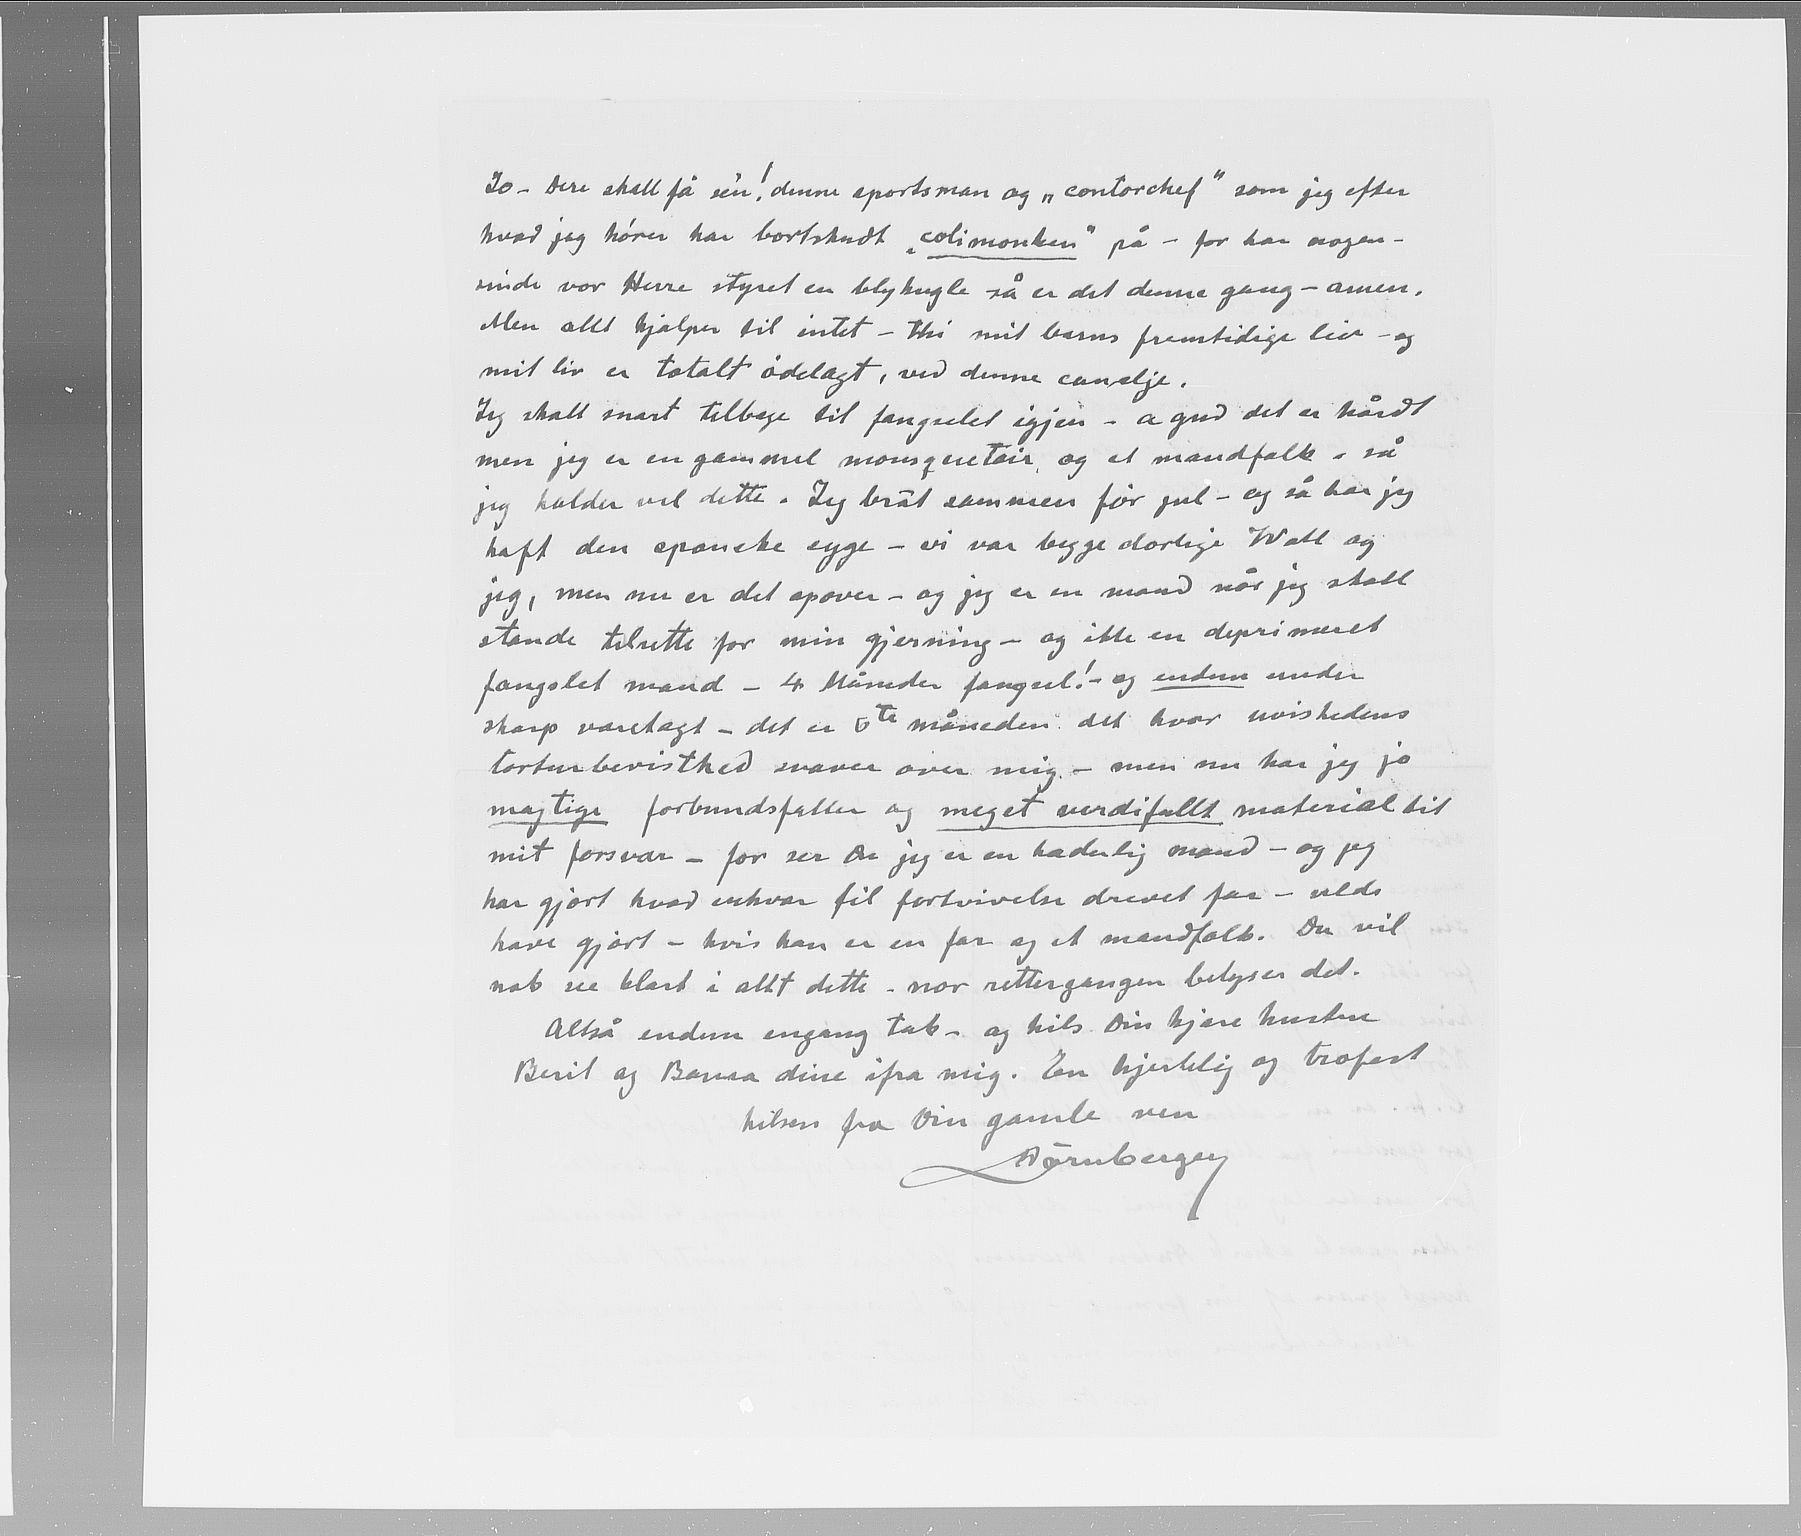 Jo – Dere skall få se'n! denne sportsman og „contorchef" som jeg efter
hvad jeg hører har bortskudt „colimonken" på – for har nogen-
sinde vor Herre styret en blykugle så er det denne gang – amen.
Men allt hjalper til intet – thi mit barns fremtidige liv – og
mit liv er totalt ödelagt, ved denne canalje.
Jeg skall snart tilbage til fangselet igjen – a gud det er hårdt
men jeg er en gammel mousquetair, og et mandfolk – så
jeg holder vel dette. Jeg bröt sammen för jul – og så har jeg
haft den spanske syge – vi var begge dorlige Wall og
jeg, men nu er det opover – og jeg er en mand når jeg skall
stande tilrette for min gjerning – og ikke en deprimeret
fangslet mand – 4 Måneder fangsel! – og endnu under
skarp varetagt – det er 5te måneden det hvor uvishedens
torturbevisthed svaver over mig – men nu har jeg jo
magtige forbundsfeller og meget verdifullt material til
mit forsvar – for ser Du jeg er en haderlig mand – og jeg
har gjort hvad enhver til fortvivelse drevet far – vilde
have gjort – hvis han er en far og et mandfolk. Du vil
nok see klart i allt dette – nor rettergangen belyser det.
Altså endnu engang tak – og hils Din kjare hustru
Berit og Barna dine ifra mig. En hjertelig og trofast
hilsen fra Din gamle ven
Dörnberger